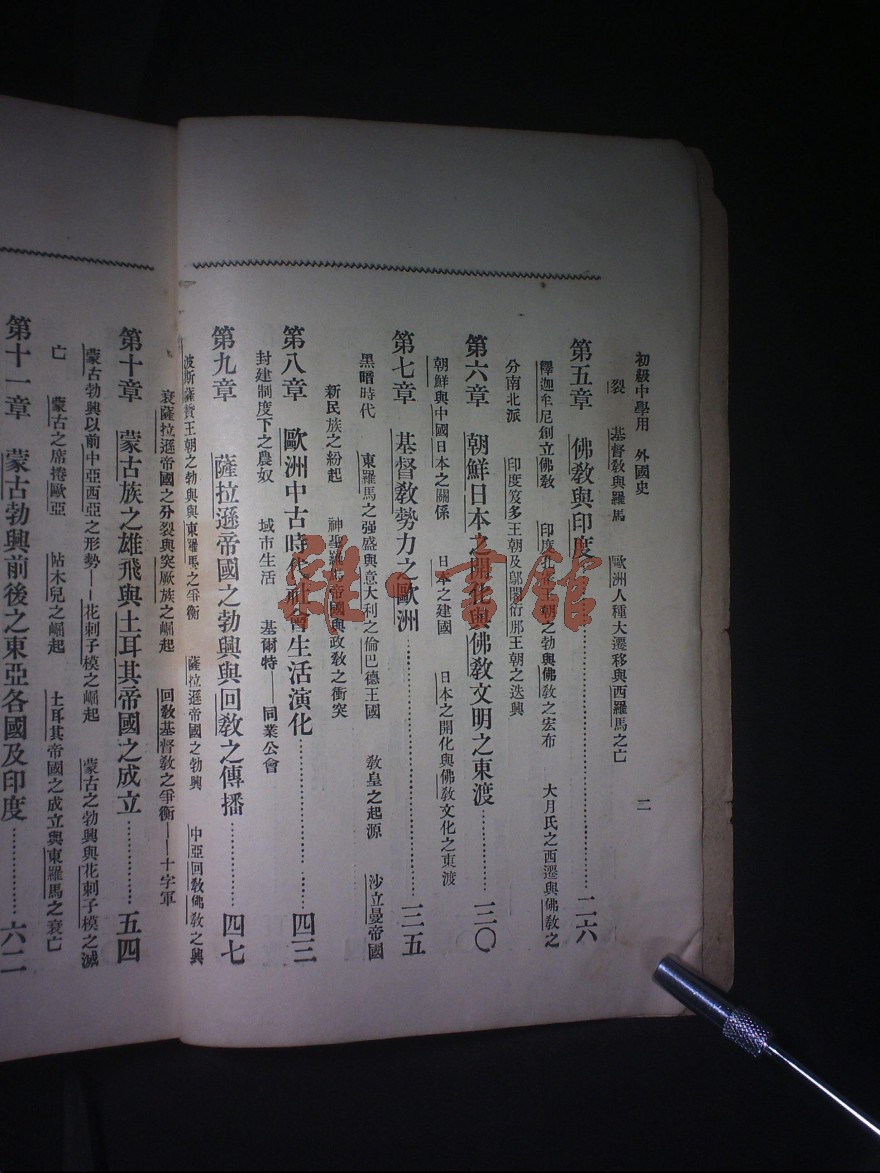 初級中學用　外國史　二
裂　基督教與羅馬　歐洲人種大遷移與西羅馬之亡
第五章　佛教與印度…………二六
釋迦牟尼創立佛教　印度　王朝之勃興與佛教之宏布　大月氏之西遷與佛教之
分南北派　印度笈多王朝及鄔闍衍那王朝之迭興
第六章　朝鮮日本之開化與佛教文明之東渡…………三〇
朝鮮與中國日本之關係　日本之建國　日本之開化與佛教文化之東渡
第七章　基督教勢力之歐洲…………三五
黑暗時代　東羅馬之強盛與意大利之倫巴德王國　教皇之起源　沙立曼帝國
新民族之紛起　神聖羅馬帝國與政教之衝突
第八章　歐洲中古時代社會生活演化…………四三
封建制度下之農奴　城市生活　基爾特——同業公會
第九章　薩拉遜帝國之勃興與回教之傳播…………四七
波斯薩贊王朝之勃興與東羅馬之爭衡　薩拉遜帝國之勃興　中亞回教佛教之興
衰薩拉遜帝國之分裂與突厥族之崛起　回教基督教之爭衡——十字軍
第十章　蒙古族之雄飛與土耳其帝國之成立…………五四
蒙古勃興以前中亞西亞之形勢——花剌子模之崛起　蒙古之勃興與花剌子模之滅
亡　蒙古之席捲歐亞　帖木兒之崛起　土耳其帝國之成立與東羅馬之衰亡
第十一章　蒙古勃興前後之東亞各國及印度…………六二
雜·書館